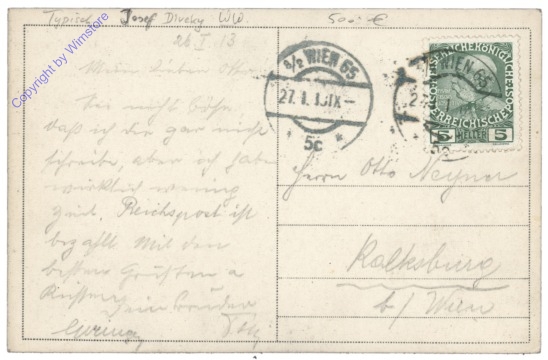 Typisch Josef Divéky WW. 500,- €
26 I 13
Copyright by Wimstore
Mein lieber
Sei nicht böse
daß ich dir gar nicht
schreibe, aber ich habe
wirklich wenig
Zeit. Reichspost ist
bezahlt Mit den
besten Grüßen u
Küssen dein Bruder
8/2 WIEN 65
27. I. 13 IX-
* 5c *
WIEN 65
5 HELLER 5
Herrn Otto
Kalksburg
b/ Wien